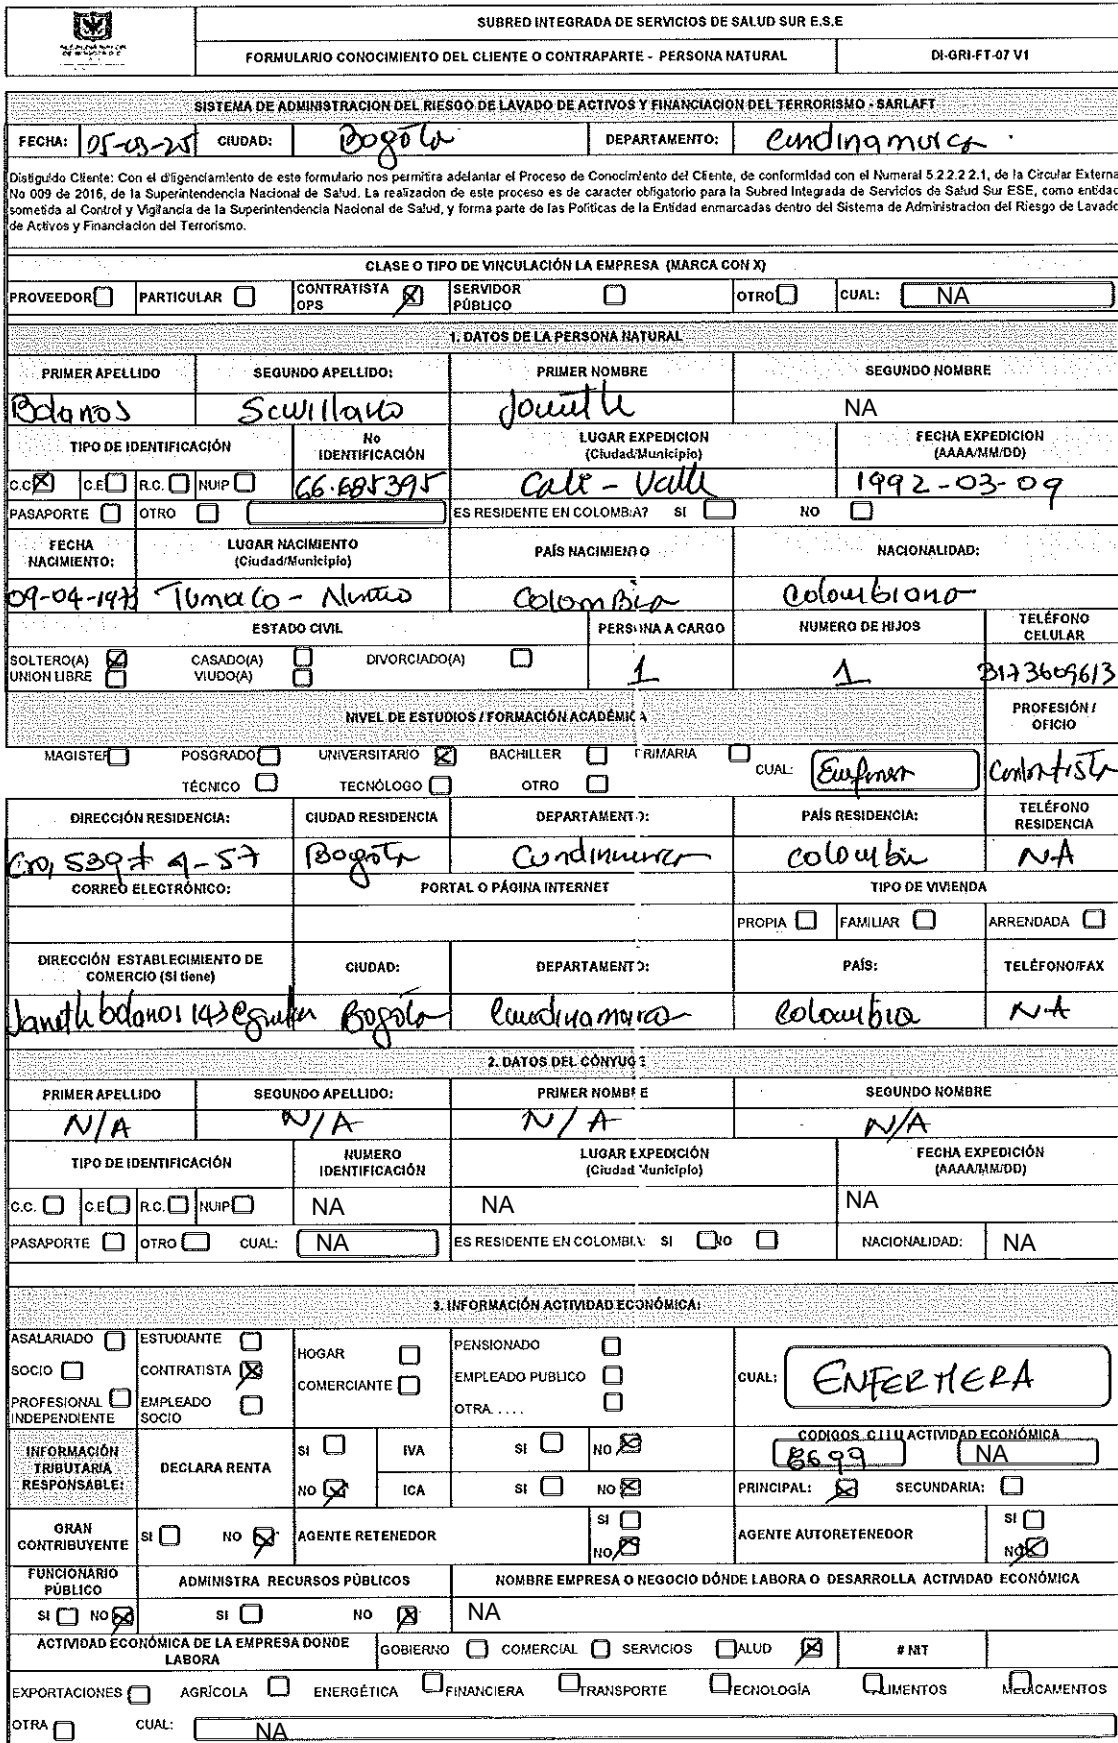 SUBRED INTEGRADA DE SERVICIOS DE SALUD SUR E.S.E
FORMULARIO CONOCIMIENTO DEL CLIENTE O CONTRAPARTE - PERSONA NATURAL DI-GRI-FT-07 V1
SISTEMA DE ADMINISTRACION DEL RIESGO DE LAVADO DE ACTIVOS Y FINANCIACION DEL TERRORISMO - SARLAFT
FECHA: 05-03-25 CIUDAD: Bogota DEPARTAMENTO: Cundinamarca
Distiguido Cliente: Con el diligenciamiento de este formulario nos permitira adelantar el Proceso de Conocimiento del Cliente, de conformidad con el Numeral 5.2.2.2.2.1, de la Circular Externa
No 009 de 2016, de la Superintendencia Nacional de Salud. La realizacion de este proceso es de caracter obligatorio para la Subred Integrada de Servicios de Salud Sur ESE, como entidad
sometida al Control y Vigilancia de la Superintendencia Nacional de Salud, y forma parte de las Politicas de la Entidad enmarcadas dentro del Sistema de Administracion del Riesgo de Lavado
de Activos y Financiacion del Terrorismo.
CLASE O TIPO DE VINCULACIÓN LA EMPRESA (MARCA CON X)
PROVEEDOR PARTICULAR CONTRATISTA OPS X SERVIDOR PÚBLICO OTRO CUAL: NA
1. DATOS DE LA PERSONA NATURAL
PRIMER APELLIDO SEGUNDO APELLIDO: PRIMER NOMBRE SEGUNDO NOMBRE
Bolanos Janeth NA
TIPO DE IDENTIFICACIÓN No IDENTIFICACIÓN LUGAR EXPEDICION (Ciudad/Municipio) FECHA EXPEDICION (AAAA/MM/DD)
C.C X C.E R.C. NUIP 66.685395 Cali - Valle 1992-03-09
PASAPORTE OTRO ES RESIDENTE EN COLOMBIA? SI NO
FECHA NACIMIENTO: LUGAR NACIMIENTO (Ciudad/Municipio) PAÍS NACIMIENTO NACIONALIDAD:
09-04-1973 Tumaco - Nariño Colombia Colombiana
ESTADO CIVIL PERSONA A CARGO NUMERO DE HIJOS TELÉFONO CELULAR
SOLTERO(A) X CASADO(A) DIVORCIADO(A) 1 1 3173609613
UNION LIBRE VIUDO(A)
NIVEL DE ESTUDIOS / FORMACIÓN ACADÉMICA PROFESIÓN / OFICIO
MAGISTER POSGRADO UNIVERSITARIO X BACHILLER PRIMARIA CUAL: Enfermer Contratista
TÉCNICO TECNÓLOGO OTRO
DIRECCIÓN RESIDENCIA: CIUDAD RESIDENCIA DEPARTAMENTO: PAÍS RESIDENCIA: TELÉFONO RESIDENCIA
Cra, 539 # 4-57 Bogota Cundinamarca Colombia N.A
CORREO ELECTRÓNICO: PORTAL O PÁGINA INTERNET TIPO DE VIVIENDA
PROPIA FAMILIAR ARRENDADA
DIRECCIÓN ESTABLECIMIENTO DE COMERCIO (SI tiene) CIUDAD: DEPARTAMENTO: PAÍS: TELÉFONO/FAX
Janeth bolanos Bogota Cundinamarca Colombia N.A
2. DATOS DEL CÓNYUGE
PRIMER APELLIDO SEGUNDO APELLIDO: PRIMER NOMBRE SEGUNDO NOMBRE
N/A N/A N/A N/A
TIPO DE IDENTIFICACIÓN NUMERO IDENTIFICACIÓN LUGAR EXPEDICIÓN (Ciudad/Municipio) FECHA EXPEDICIÓN (AAAA/MM/DD)
C.C. C.E R.C. NUIP NA NA NA
PASAPORTE OTRO CUAL: NA ES RESIDENTE EN COLOMBIA: SI NO NACIONALIDAD: NA
3. INFORMACIÓN ACTIVIDAD ECONÓMICA:
ASALARIADO ESTUDIANTE HOGAR PENSIONADO
SOCIO CONTRATISTA X COMERCIANTE EMPLEADO PUBLICO CUAL: ENFERMERA
PROFESIONAL INDEPENDIENTE EMPLEADO SOCIO OTRA.....
INFORMACIÓN TRIBUTARIA RESPONSABLE: DECLARA RENTA SI IVA SI NO X CODIGOS CIIU ACTIVIDAD ECONÓMICA 8699 NA
NO X ICA SI NO X PRINCIPAL: X SECUNDARIA:
GRAN CONTRIBUYENTE SI NO X AGENTE RETENEDOR SI NO X AGENTE AUTORETENEDOR SI NO X
FUNCIONARIO PÚBLICO ADMINISTRA RECURSOS PÚBLICOS NOMBRE EMPRESA O NEGOCIO DÓNDE LABORA O DESARROLLA ACTIVIDAD ECONÓMICA
SI NO X SI NO X NA
ACTIVIDAD ECONÓMICA DE LA EMPRESA DONDE LABORA GOBIERNO COMERCIAL SERVICIOS ALUD X # NIT
EXPORTACIONES AGRÍCOLA ENERGÉTICA FINANCIERA TRANSPORTE ECNOLOGÍA LIMENTOS MEDICAMENTOS
OTRA CUAL: NA